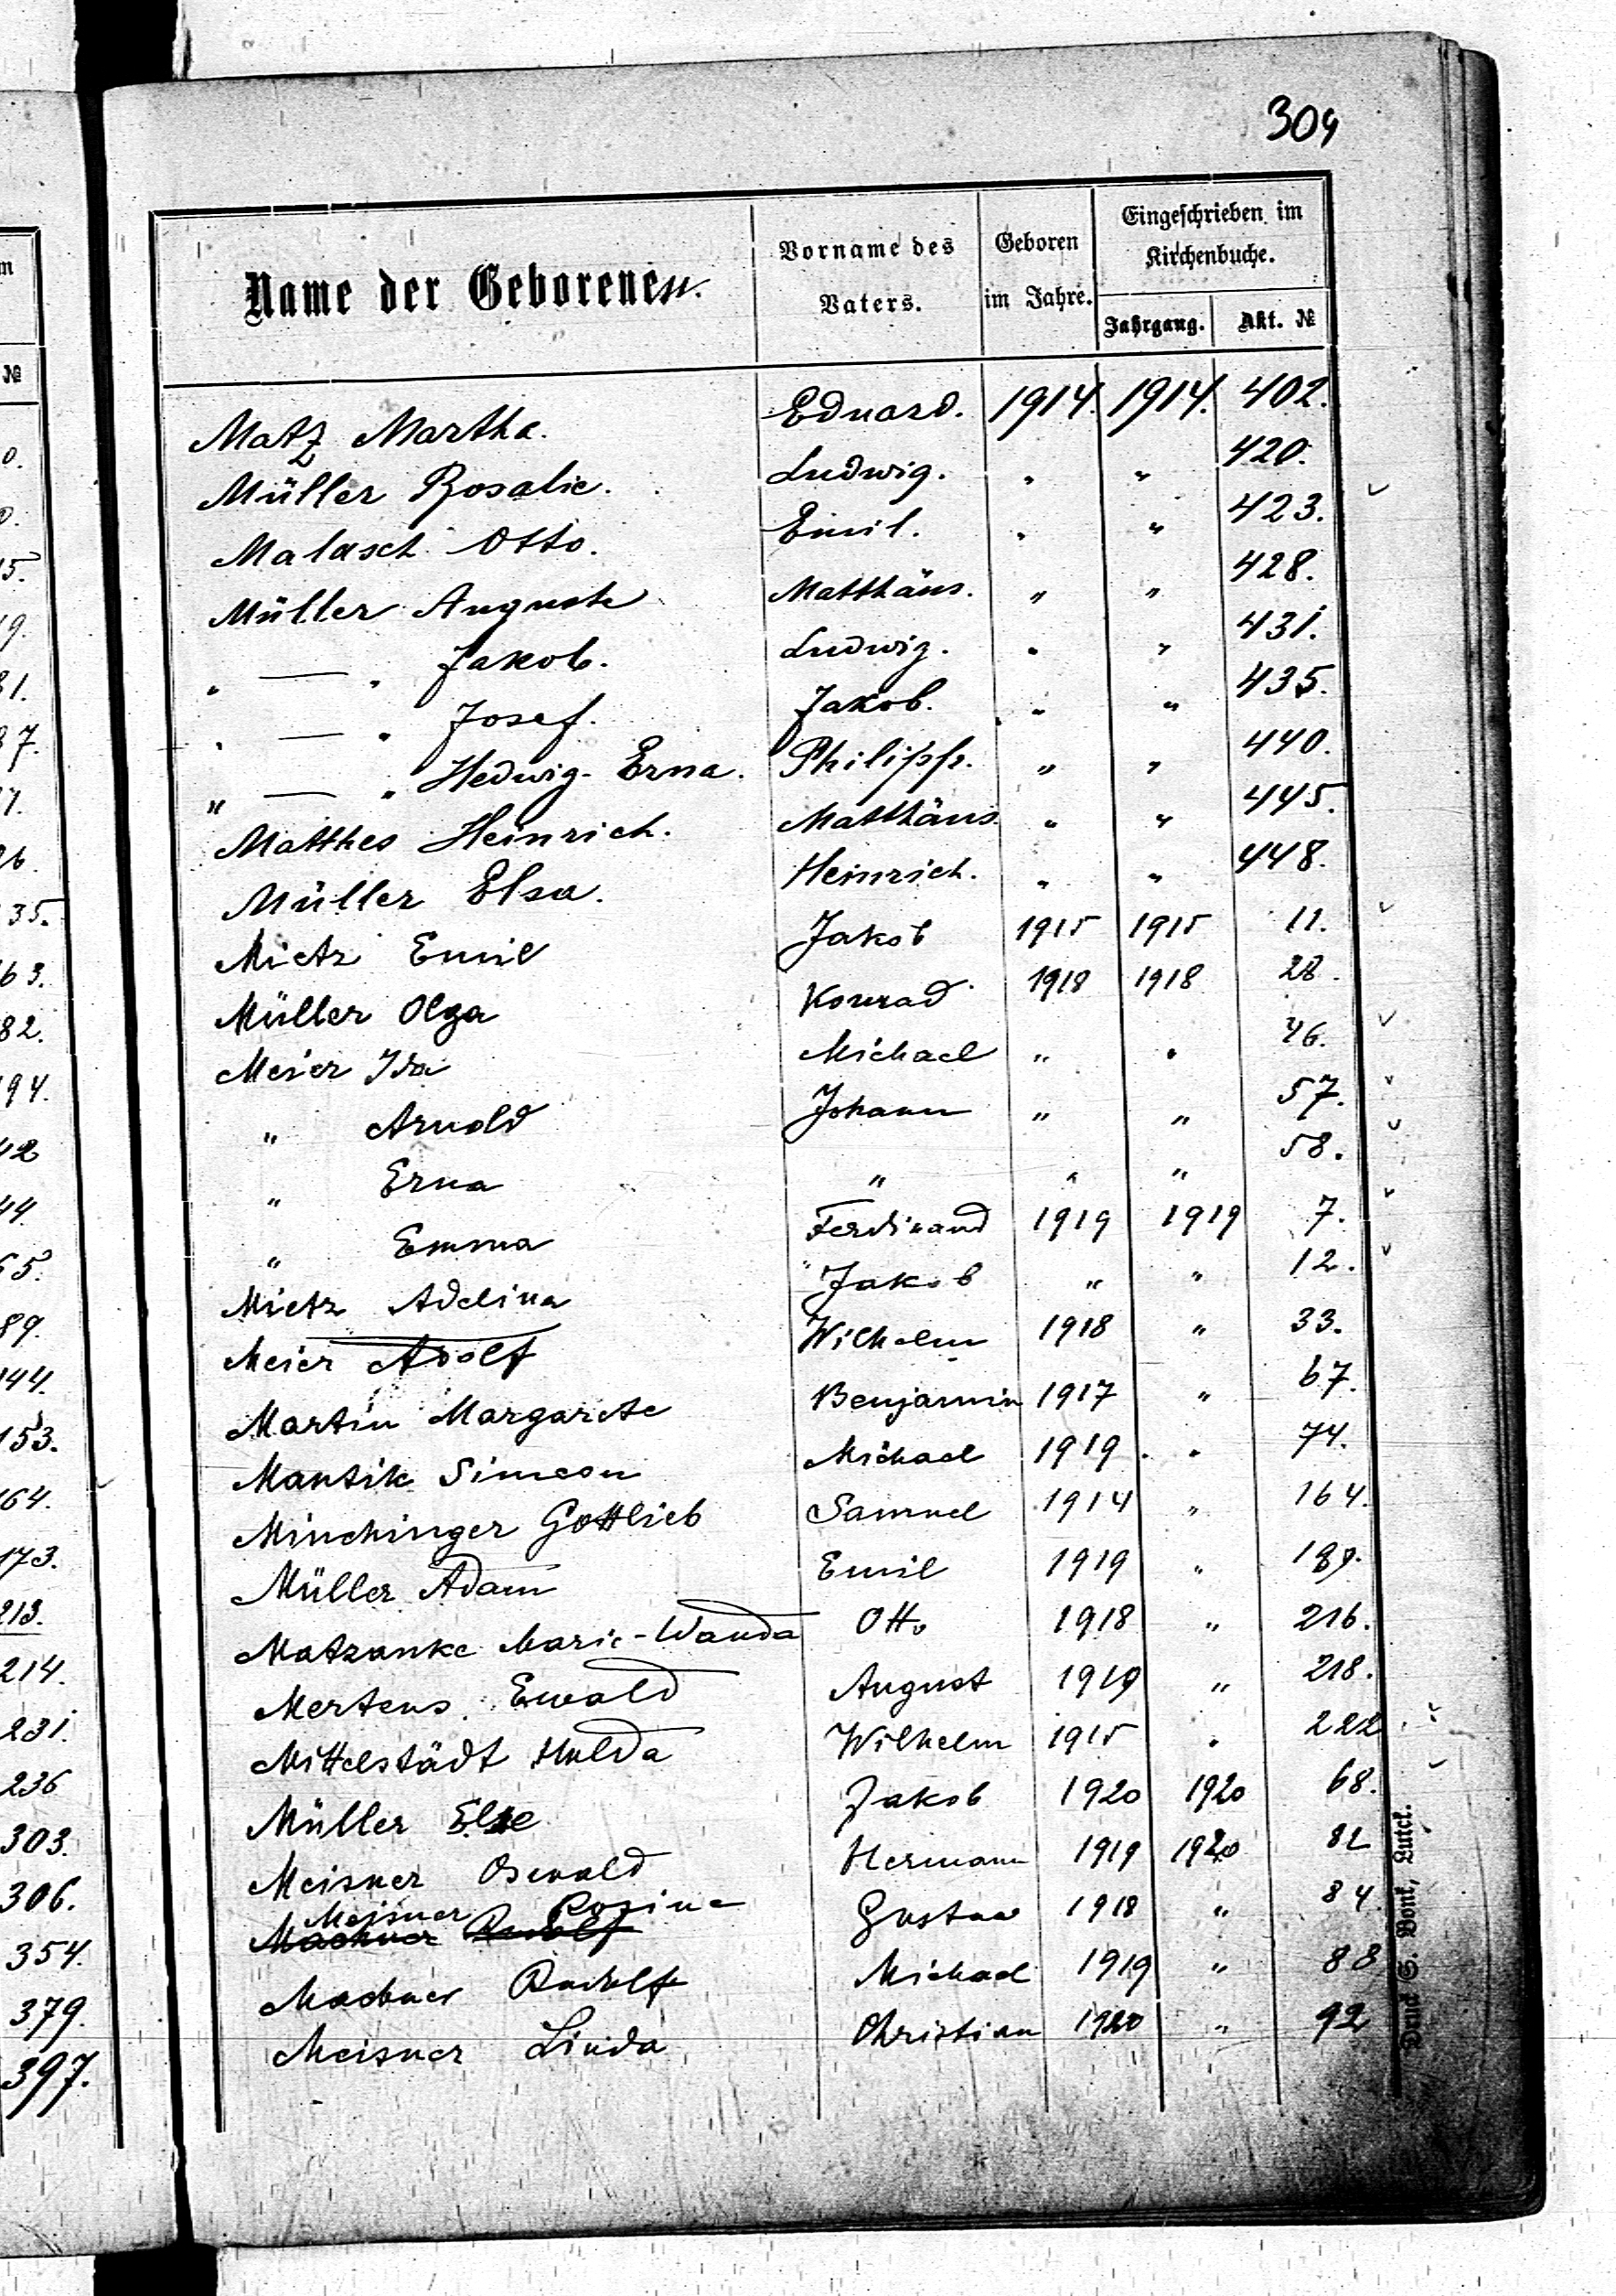 304
Name der Geborenen.
Vorname des Vaters.
Geboren im Jahre.
Eingeschrieben im Kirchenbuche.
Jahrgang. Akt. №
Matz Martha. Eduard. 1914. 1914. 402.
Müller Rosalie. Ludwig. " " 420.
Malasch Otto. Emil. " " 423.
Müller Auguste Matthäus. " " 428.
" — " Jakob. Ludwig. " " 431.
" — " Josef. Jakob. " " 435.
" — " Hedwig-Erna. Philipp. " " 440.
Matthes Heinrich. Matthäus. " " 445.
Müller Elsa. Heinrich. " " 448.
Mietz Emil Jakob 1915 1915 11.
Müller Olga Konrad 1918 1918 28.
Meier Ida Michael " " 46.
" Arnold Johann " " 57.
" Erna " " " 58.
" Emma Ferdinand 1919 1919 7.
Mietz Adelina Jakob " " 12.
Meier Adolf Wilhelm 1918 " 33.
Martin Margarete Benjamin 1917 " 67.
Mantik Simeon Michael 1919. " 74.
Minchinger Gottlieb Samuel 1914 " 164.
Müller Adam Emil 1919 " 189.
Matzanke Marie-Wanda Otto 1918 " 216.
Mertens Ewald August 1919 " 218.
Mittelstädt Hulda Wilhelm 1915 " 222
Müller Else Jakob 1920 1920 68.
Meisner Oswald Hermann 1919 1920 82
Meisner Rosine
Machner Rudolf Gustav 1918 " 84.
Machner Rudolf Michael 1919 " 88
Meisner Linda Christian 1920 " 92
Druck S. Bonk, Lutck.
№
35.
63.
82.
94.
42
44.
65.
89.
144.
153.
164.
173.
213.
214.
231.
236
303.
306.
354.
379.
397.